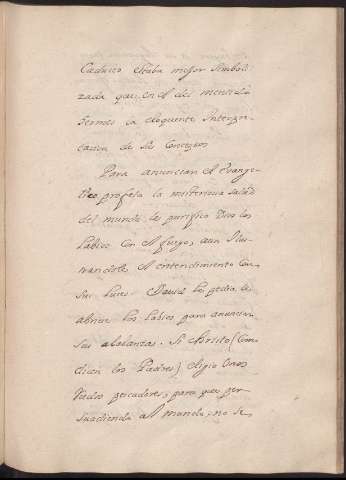 Caduceo estaba mejor simboli-
zada que en el del menti
fermes la eloquente Interpre-
tacion de sus Consejos
Para anunciar el Evange-
lico profeta la misteriosa salud
del mundo, le purifico Dios los
labios con el fuego, aun Ilus-
trandole el entendimiento con
sus luces. David le pedia le
abriese los labios para anunciar
sus alabanzas. Si Christo (Como
dicen los Padres) eligio Unos
rudos pescadores, para que per-
suadiendo al mundo, no se